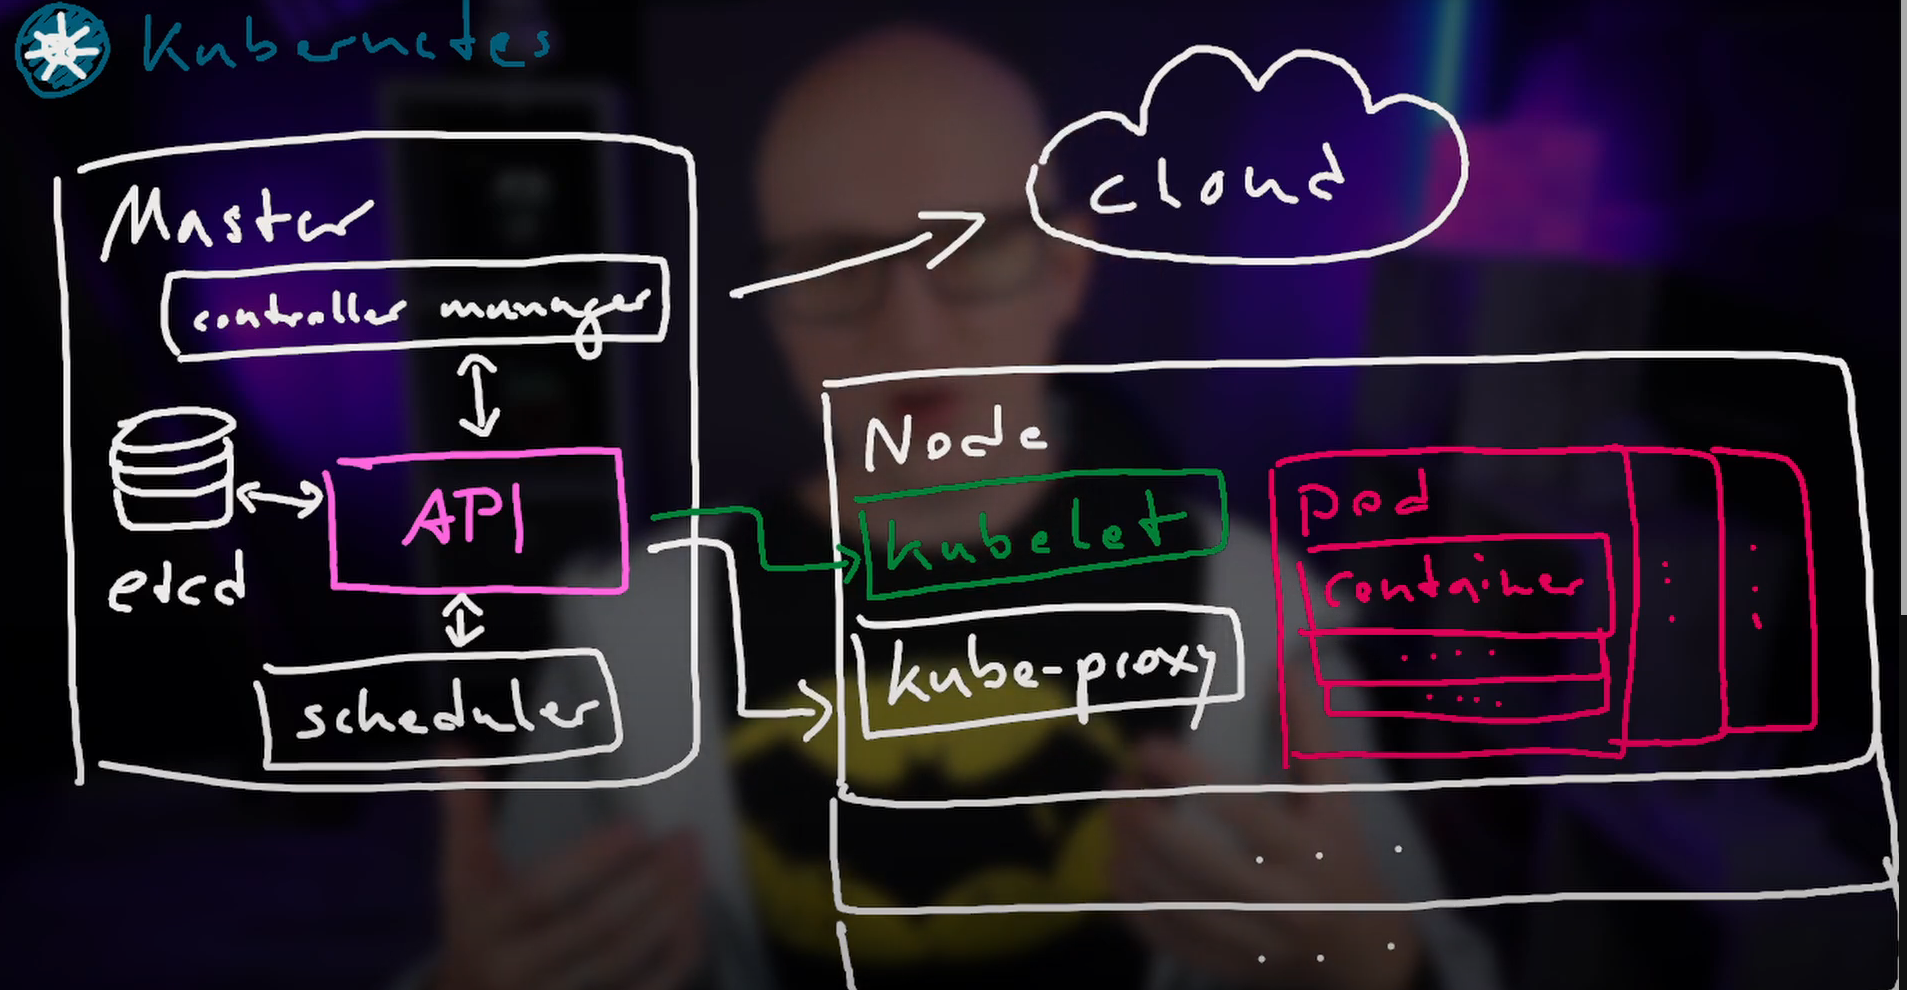 Kubernetes
cloud
Master
controller manager
etcd
API
scheduler
Node
kubelet
kube-proxy
pod
container